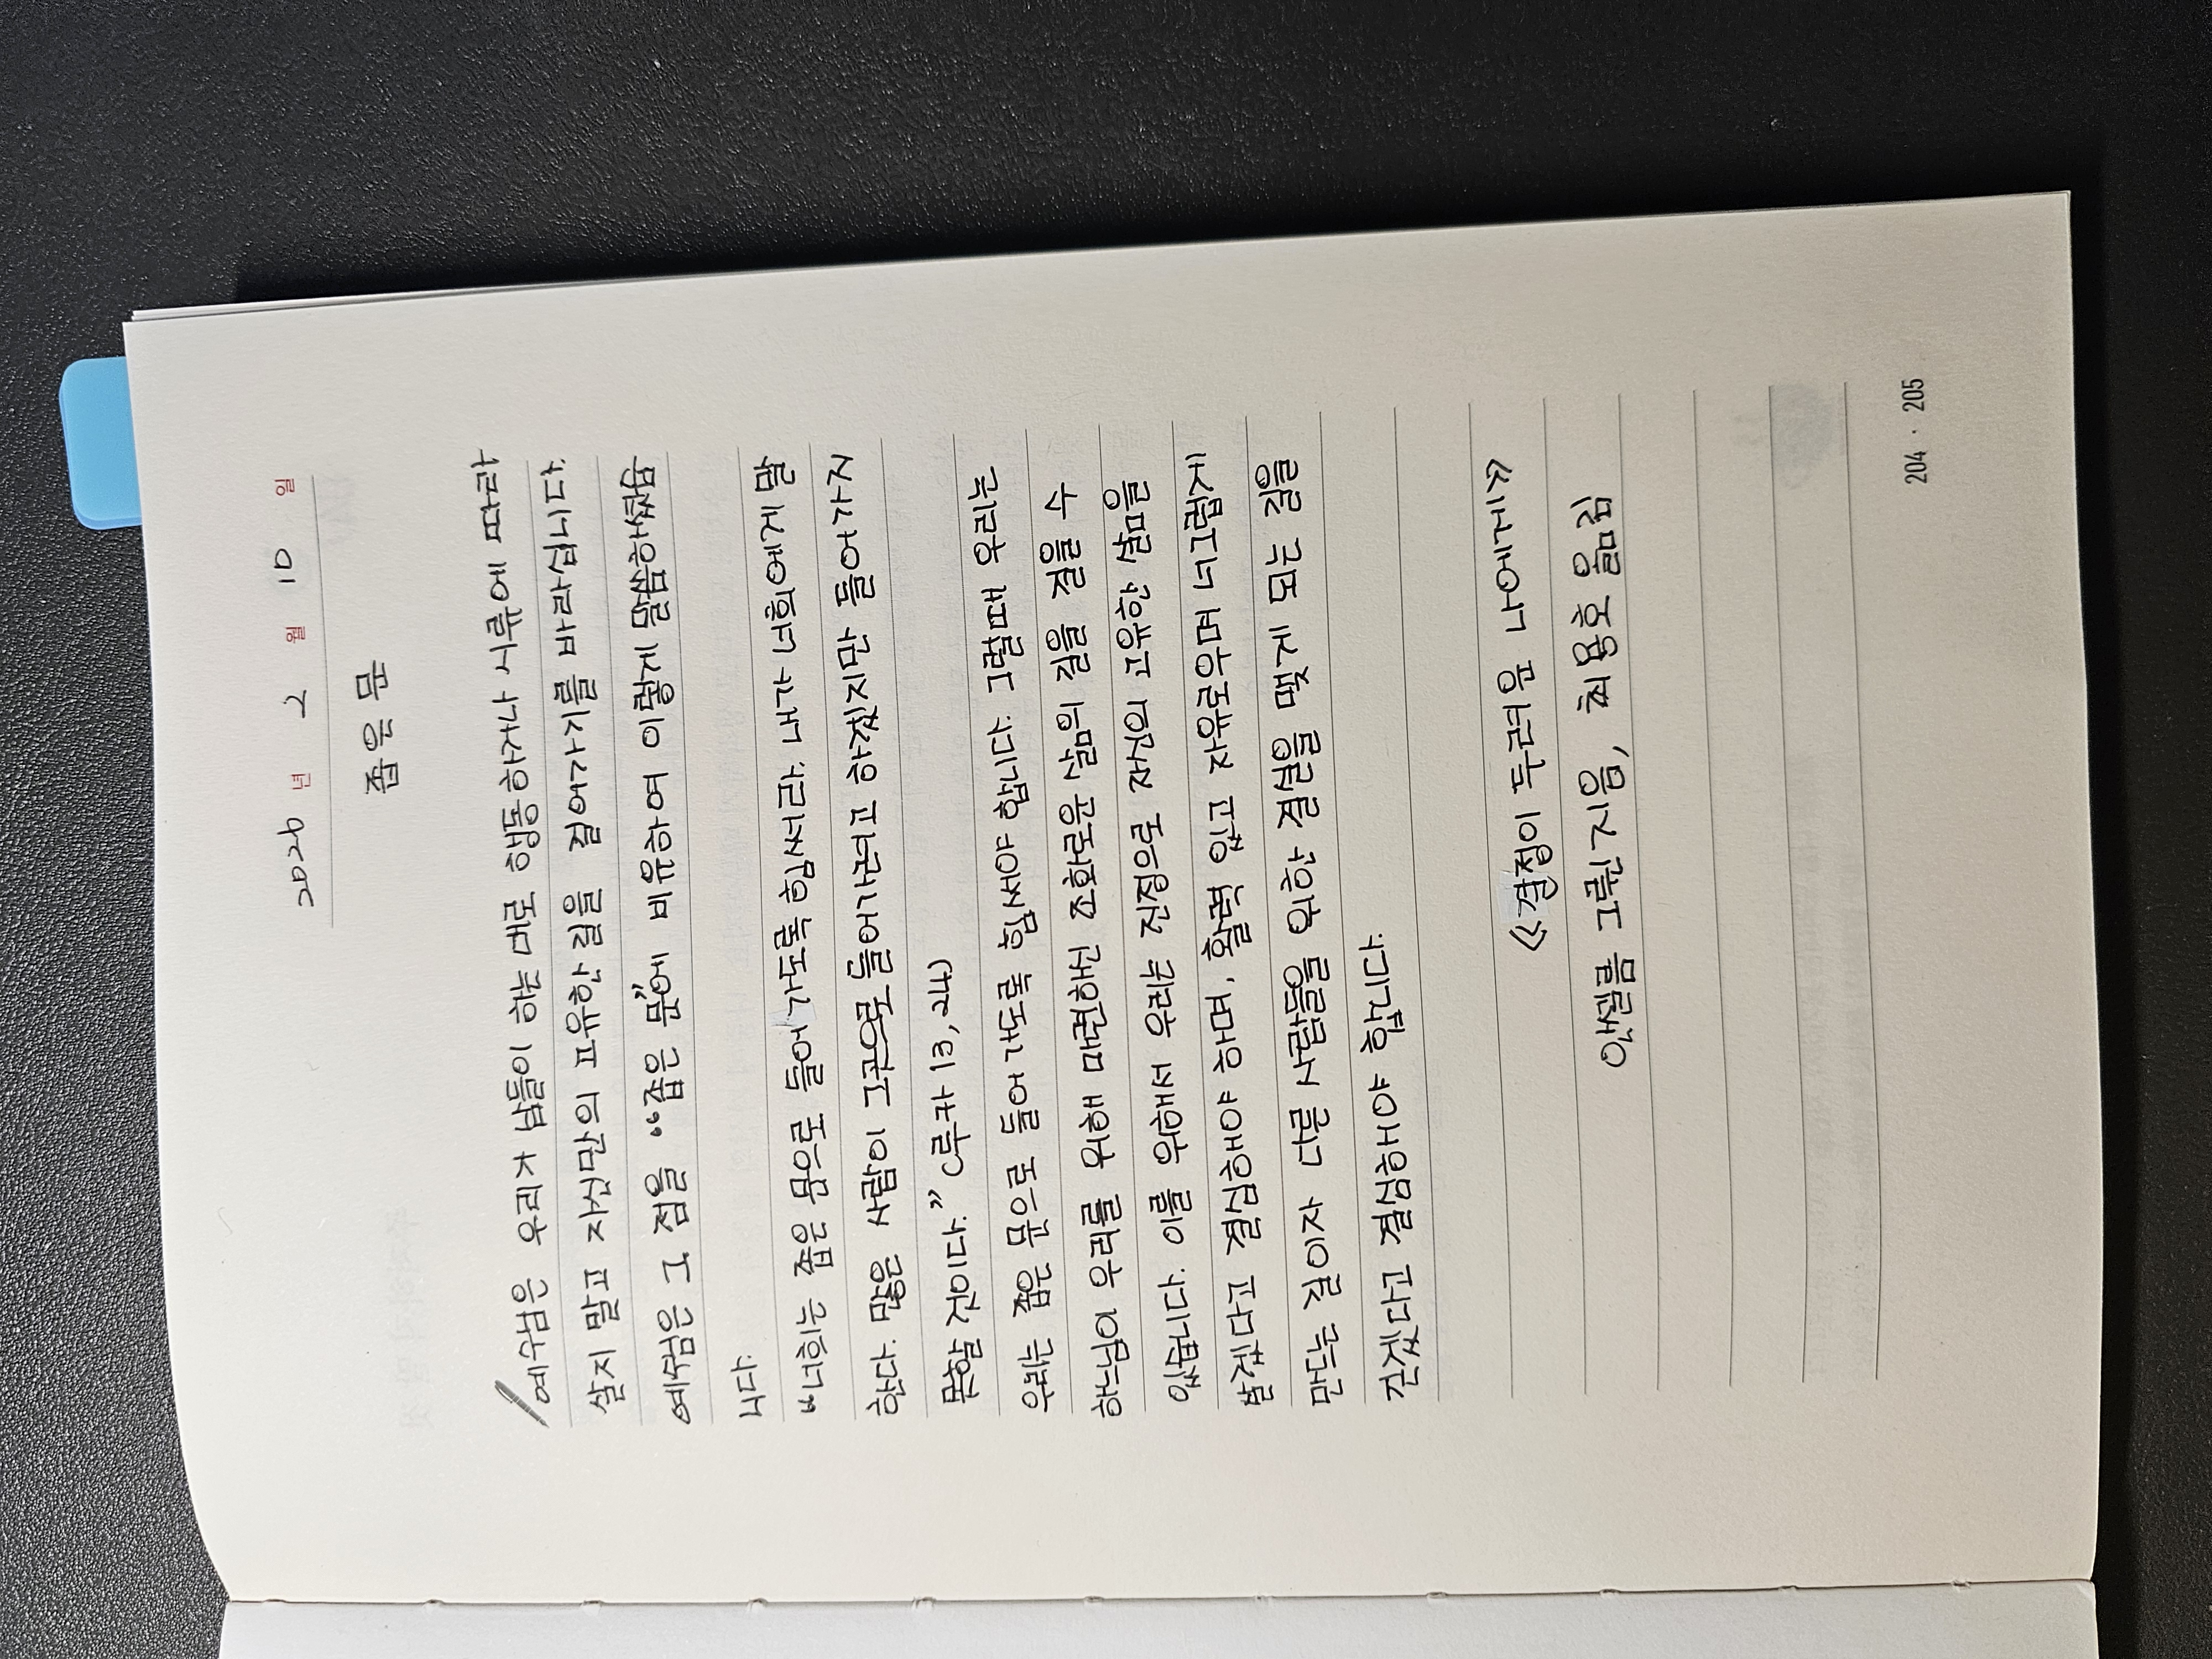 2026 년 2 월 10 일
좁은 문
예수님은 우리가 남들이 하는 대로 행동하거나 시류에 따라
살지 말고 자신만의 고유한 길을 걸어가기를 바라십니다.
예수님은 그 점을 “좁은 문”에 비유하여 이렇게 말씀하셨습
니다.
“너희는 좁은 문으로 들어가도록 힘써라. 내가 너희에게 말
한다. 많은 사람이 그곳으로 들어가려고 하겠지만 들어가지
못할 것이다.” (루카 13, 24)
우리는 좁은 문으로 들어 가도록 힘써야 합니다. 그럴때 우리는
하느님이 우리를 위해 마련하신 조화로운 삶의 길을 걸을 수
있습니다. 이를 위해서 우리는 진정으로 자신의 고유한 삶을
살겠다고 결심해야 하며, 활력 있고 자유로우며 너그럽게
만드는 길이자 다른 사람들을 위한 결실을 맺게 되는 길을
걷겠다고 결심해야 합니다.
《결정이 두려운 나에게》
안셀름 그륀 지음, 최용호 옮김
204 · 205